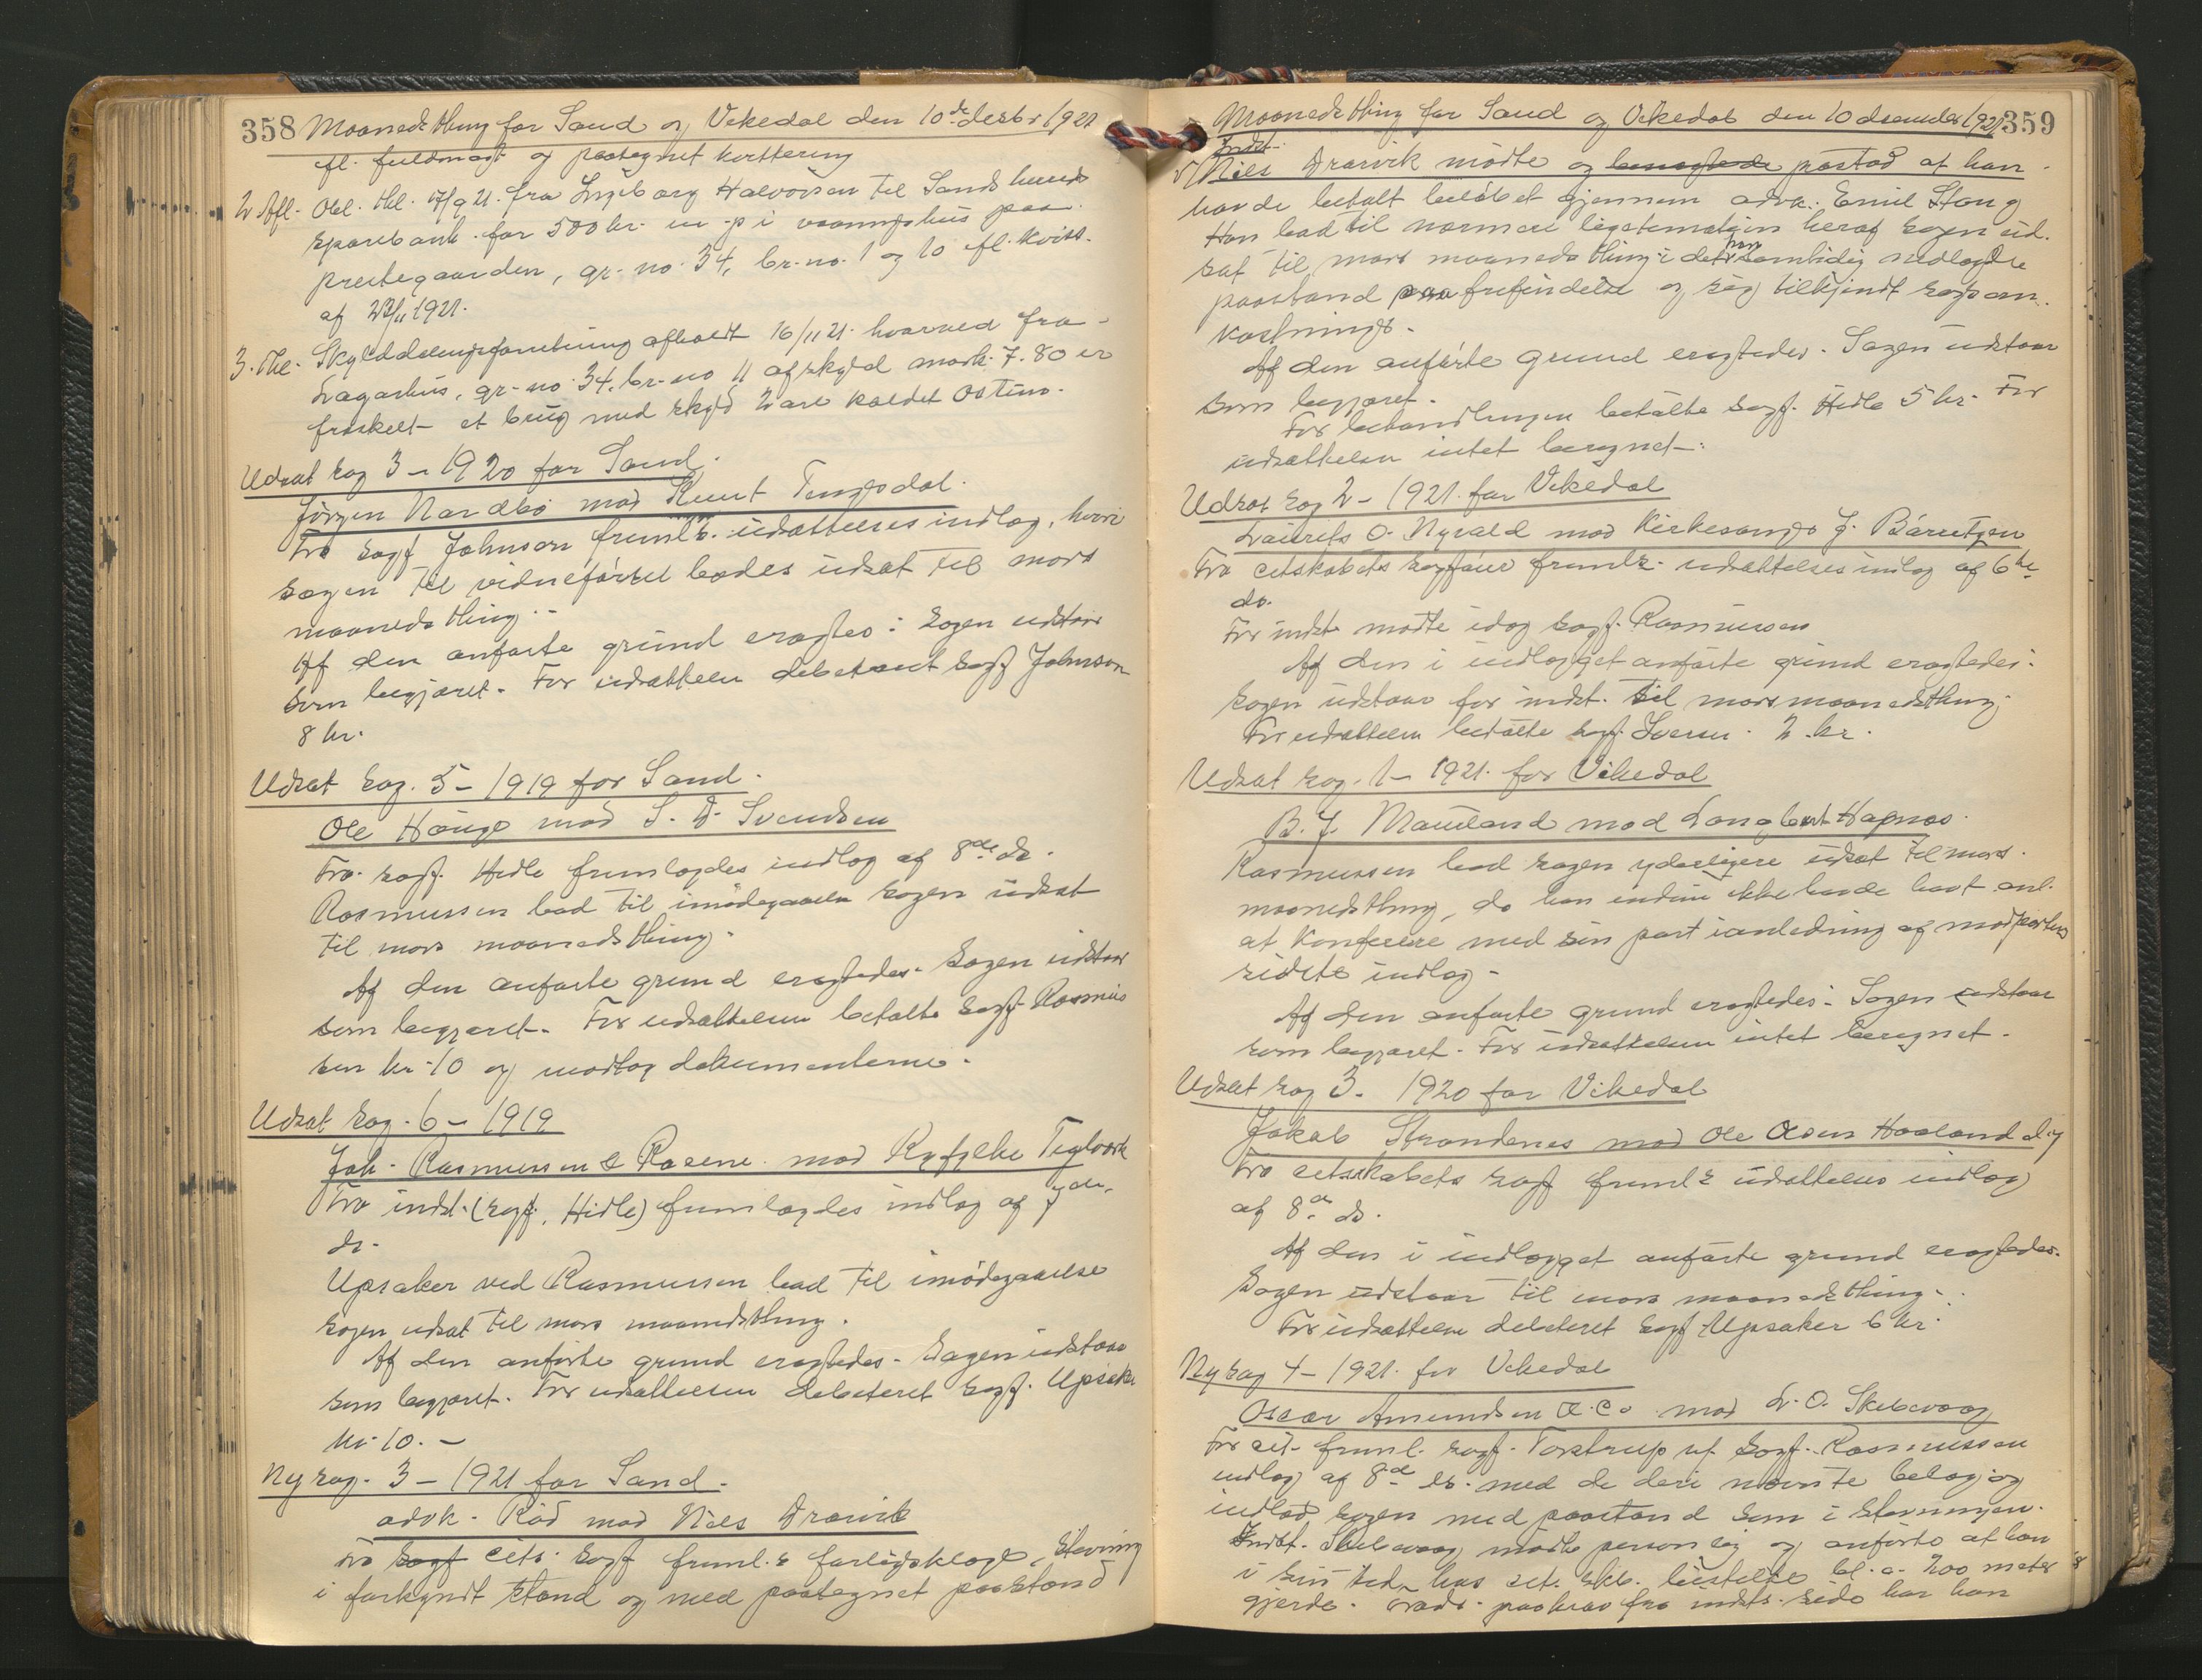 358 Maanedsthing for Sand og Vikedal den 10de desbr 1921
fl. fuldmagt og paategnet kvittering
2. Afl. Obl. thl. 17/9 21. fra Ingeborg Halvorsen til Sands
sparebank for 500 kr. m p i vaaningshus paa
prestegaarden, gr. no. 34, br. no. 1 og 10 efl. kvitt.
af 1921.
3. Thl. Skylddelingsforretning afholdt 16/11 21. hvorved fra
Lagarhus, gr. no. 34, br. no 11 af skyld mark 7.80 er
fraskelt et brug med skyld 2 øre kaldet Østmo.
Udsat sag 3 - 1920 for Sand.
Jørgen Nordbø mod Knut Tengesdal.
Fra sagf Johnson fremlb. udsættelsesindlæg, hvori
sagen til vidneførsel bedes udsat til næste
maanedsthing.
Af den anførte grund eragtes: Sagen udstaar
som begjæret. For udsættelsen debetert sagf Johnson
8 kr.
Udsat sag. 5 - 1919 for Sand.
Ole Hauge mod S. D. Svendsen
Fra sagf. Hidle fremlagdes indlæg af 8de ds.
Rasmussen bad til imødegaaelse sagen udsat
til næste maanedsthing.
Af den anførte grund eragtedes. Sagen udstaar
som begjæret. For udsættelsen betalte sagf. Rasmus
sen kr. 10 og modtog dokumenterne.
Udsat sag. 6 - 1919
Joh. Rasmussen & Racine mod Ryfylke Teglværk
Fra indst. (sagf. Hidle) fremlagdes indlæg af 7de
ds.
Upsaker ved Rasmussen bad til imødegaaelse
sagen udsat til næste maanedsthing.
Af den anførte grund eragtedes. Sagen udstaar
som begjæret. For udsættelsen debeteret sagf. Upsaker
kr 10. -
Ny sag. 3 - 1921 for Sand.
advk. Rød mod Niels Drarvik
Fra sagf cits. sagf freml. forligsklage, stævning
i forkyndt stand og med paategnet paastand
Maanedsthing for Sand og Vikedal den 10 december 1921 359
Indst.
Niels Drarvik mødte og benægtede paastod at han
havde betalt beløbet gjennem advk. Emil Stang
Han bad til nærmere legitimation heraf sagen ud-
sat til næste maanedsthing i det han samtidig nedlagde
paastand paa frifindelse og sig tilkjendt sagsom-
kostninger.
Af den anførte grund eragtedes. Sagen udstaar
som begjæret.
For behandlingen betalte sagf. Hidle 5 kr. For
udsættelsen intet beregnet.
Udsat sag 2 - 1921 for Vikedal
Laurits O. Nyvald mod Kirkesanger J. Børretzen
Fra citskabets sagfører fremlz. udsættelsesindlæg af 6te
ds.
For indst. mødte idag sagf. Rasmussen
Af den i indlægget anførte grund eragtedes:
Sagen udstaar for indst. til næste maanedsthing.
For udsættelsen betalte sagf. Iversen 2 kr.
Udsat sag. 1 - 1921 for Vikedal
B. J. Mæland mod Hapnæs.
Rasmussen bad sagen yderligere udsat til næste
maanedsthing, da han endnu ikke havde havt anl.
at konferere med sin part i anledning af modpartens
sidste indlæg.
Af den anførte grund eragtedes: Sagen udstaar
som begjæret. For udsættelsen intet beregnet.
Udsat sag 3. 1920 for Vikedal
Jakob Strandenes mod Ole Olsen Haaland
Fra citskabets sagf fremlz udsættelses indlæg
af 8de ds.
Af den i indlægget anførte grund eragtedes.
Sagen udstaar til næste maanedsthing.
For udsættelsen debeteret sagf Upsaker 6 kr.
Ny sag 4 - 1921 for Vikedal
Oscar Amundsen & Co mod L. O. Skebevaag
For cit. freml. sagf. Torstrup vf. sagf. Rasmussen
indlæg af 8de ds. med de deri nævnte belæg og
indlod sagen med paastand som i stævningen.
Indst. Skebevaag mødte personlig og anførte at han
i sin tid hos cit. skb. bestilte bl. a. 200 meter
gjerde. Trods paakrav fra indsts. side har han